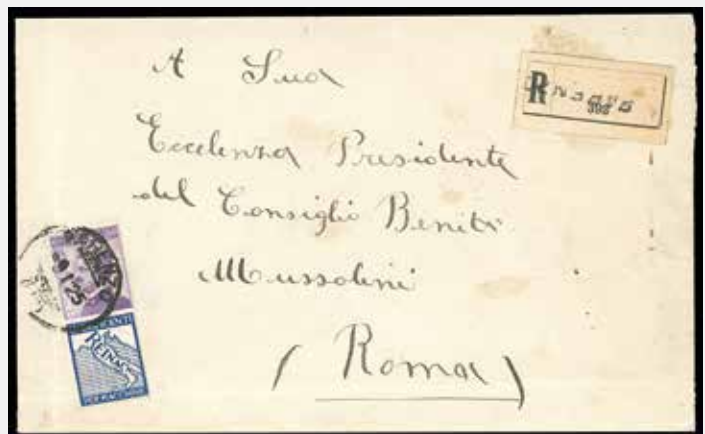 A Sua
R
Eccelenza Presidente
del Consiglio Benito
Mussolini
9.1.25
REINACH
( Roma )